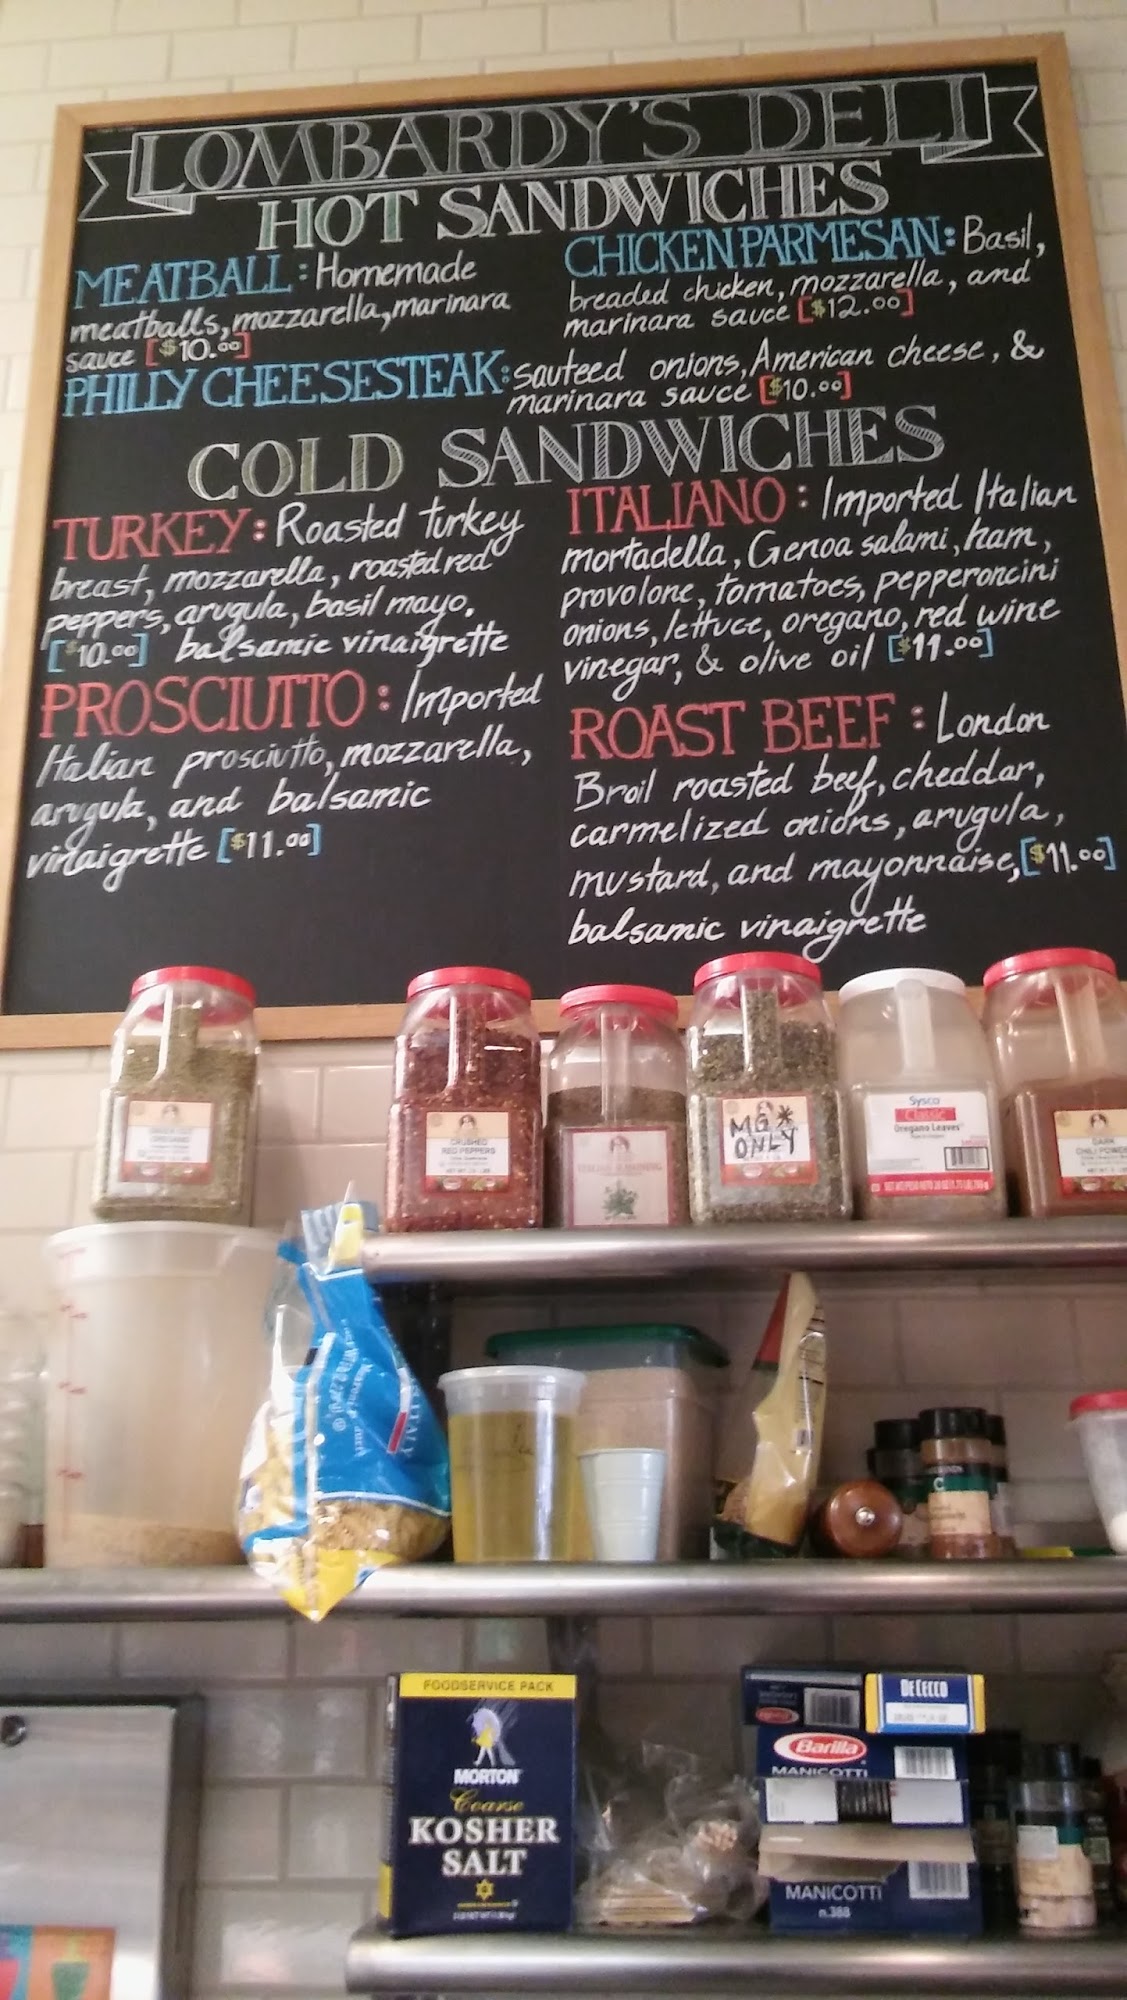 LOMBARDY'S DELI
HOT SANDWICHES
MEATBALL: Homemade
meatballs, mozzarella, marinara
sauce [$10.00]
CHICKEN PARMESAN: Basil,
breaded chicken, mozzarella, and
marinara sauce [$12.00]
PHILLY CHEESESTEAK: sauteed onions, American cheese, &
marinara sauce [$10.00]
COLD SANDWICHES
TURKEY: Roasted turkey
breast, mozzarella, roasted red
peppers, arugula, basil mayo,
[$10.00] balsamic vinaigrette
ITALIANO: Imported Italian
mortadella, Genoa salami, ham,
provolone, tomatoes, pepperoncini
onions, lettuce, oregano, red wine
vinegar, & olive oil [$11.00]
PROSCIUTTO: Imported
Italian prosciutto, mozzarella,
arugula, and balsamic
vinaigrette [$11.00]
ROAST BEEF: London
Broil roasted beef, cheddar,
carmelized onions, arugula,
mustard, and mayonnaise, [$11.00]
balsamic vinaigrette
OREGANO
CRUSHED
RED PEPPERS
ITALIAN SEASONING
MG*
ONLY
Sysco
Classic
Oregano Leaves
DARK
CHILI POWDER
ITALY
FOODSERVICE PACK
MORTON
Coarse
KOSHER
SALT
DE CECCO
Barilla
MANICOTTI
MANICOTTI
n.388